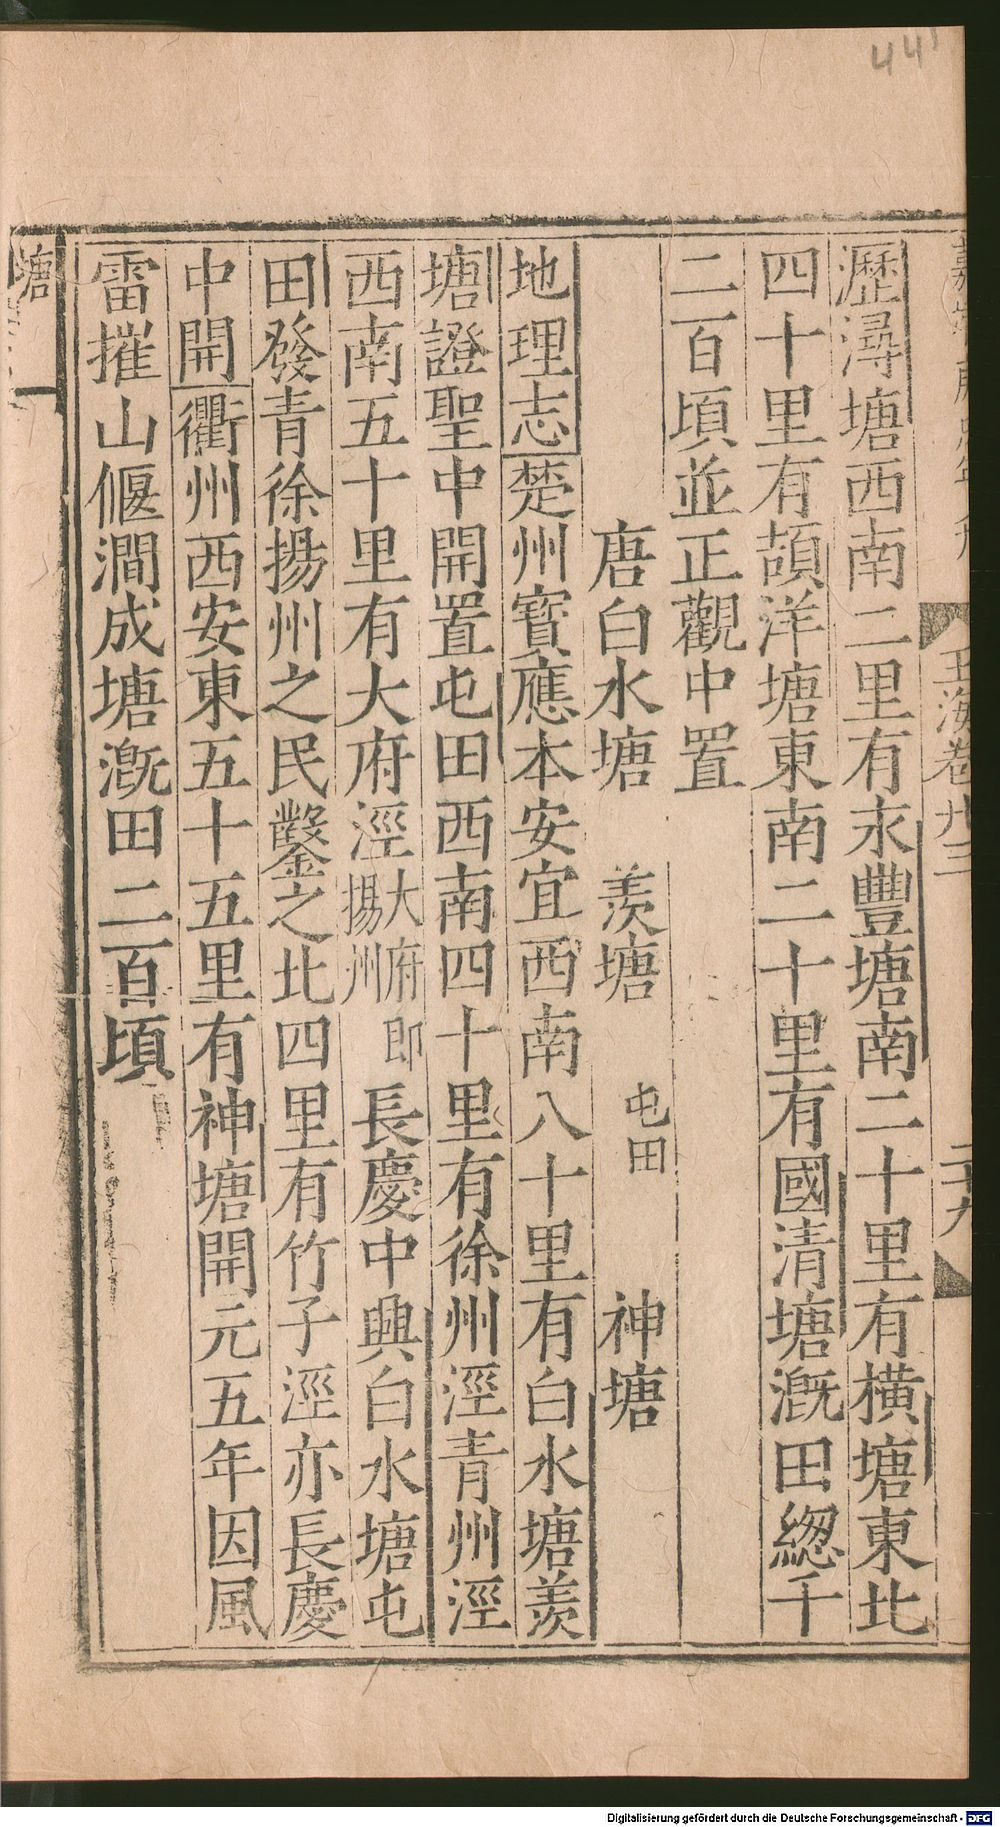 44
玉海卷廿三
二十九
瀝潯塘西南二里有永豐塘南二十里有橫塘東北
四十里有頡洋塘東南二十里有國清塘溉田緫千
二百頃並正觀中置
唐白水塘 羨塘 屯田 神塘
地理志楚州寳應本安宜西南八十里有白水塘羨
塘證聖中開置屯田西南四十里有徐州涇青州涇
西南五十里有大府涇大府即揚州長慶中興白水塘屯
田發青徐揚州之民鑿之北四里有竹子涇亦長慶
中開衢州西安東五十五里有神塘開元五年因風
雷摧山偃澗成塘溉田二百頃
塘
Digitalisierung gefördert durch die Deutsche Forschungsgemeinschaft - DFG